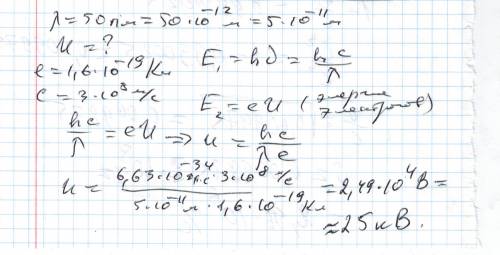 λ = 50 пм = 50·10⁻¹² м = 5·10⁻¹¹ м
U = ?
e = 1,6·10⁻¹⁹ Кл
E₁ = hν = hc/λ
c = 3·10⁸ м/с
E₂ = eU (энергия электронов)
hc/λ = eU ⇒ U = hc/λe
U = 6,63·10⁻³⁴ Дж·с·3·10⁸ м/с / 5·10⁻¹¹ м · 1,6·10⁻¹⁹ Кл = 2,49·10⁴ В =
≈ 25 кВ.